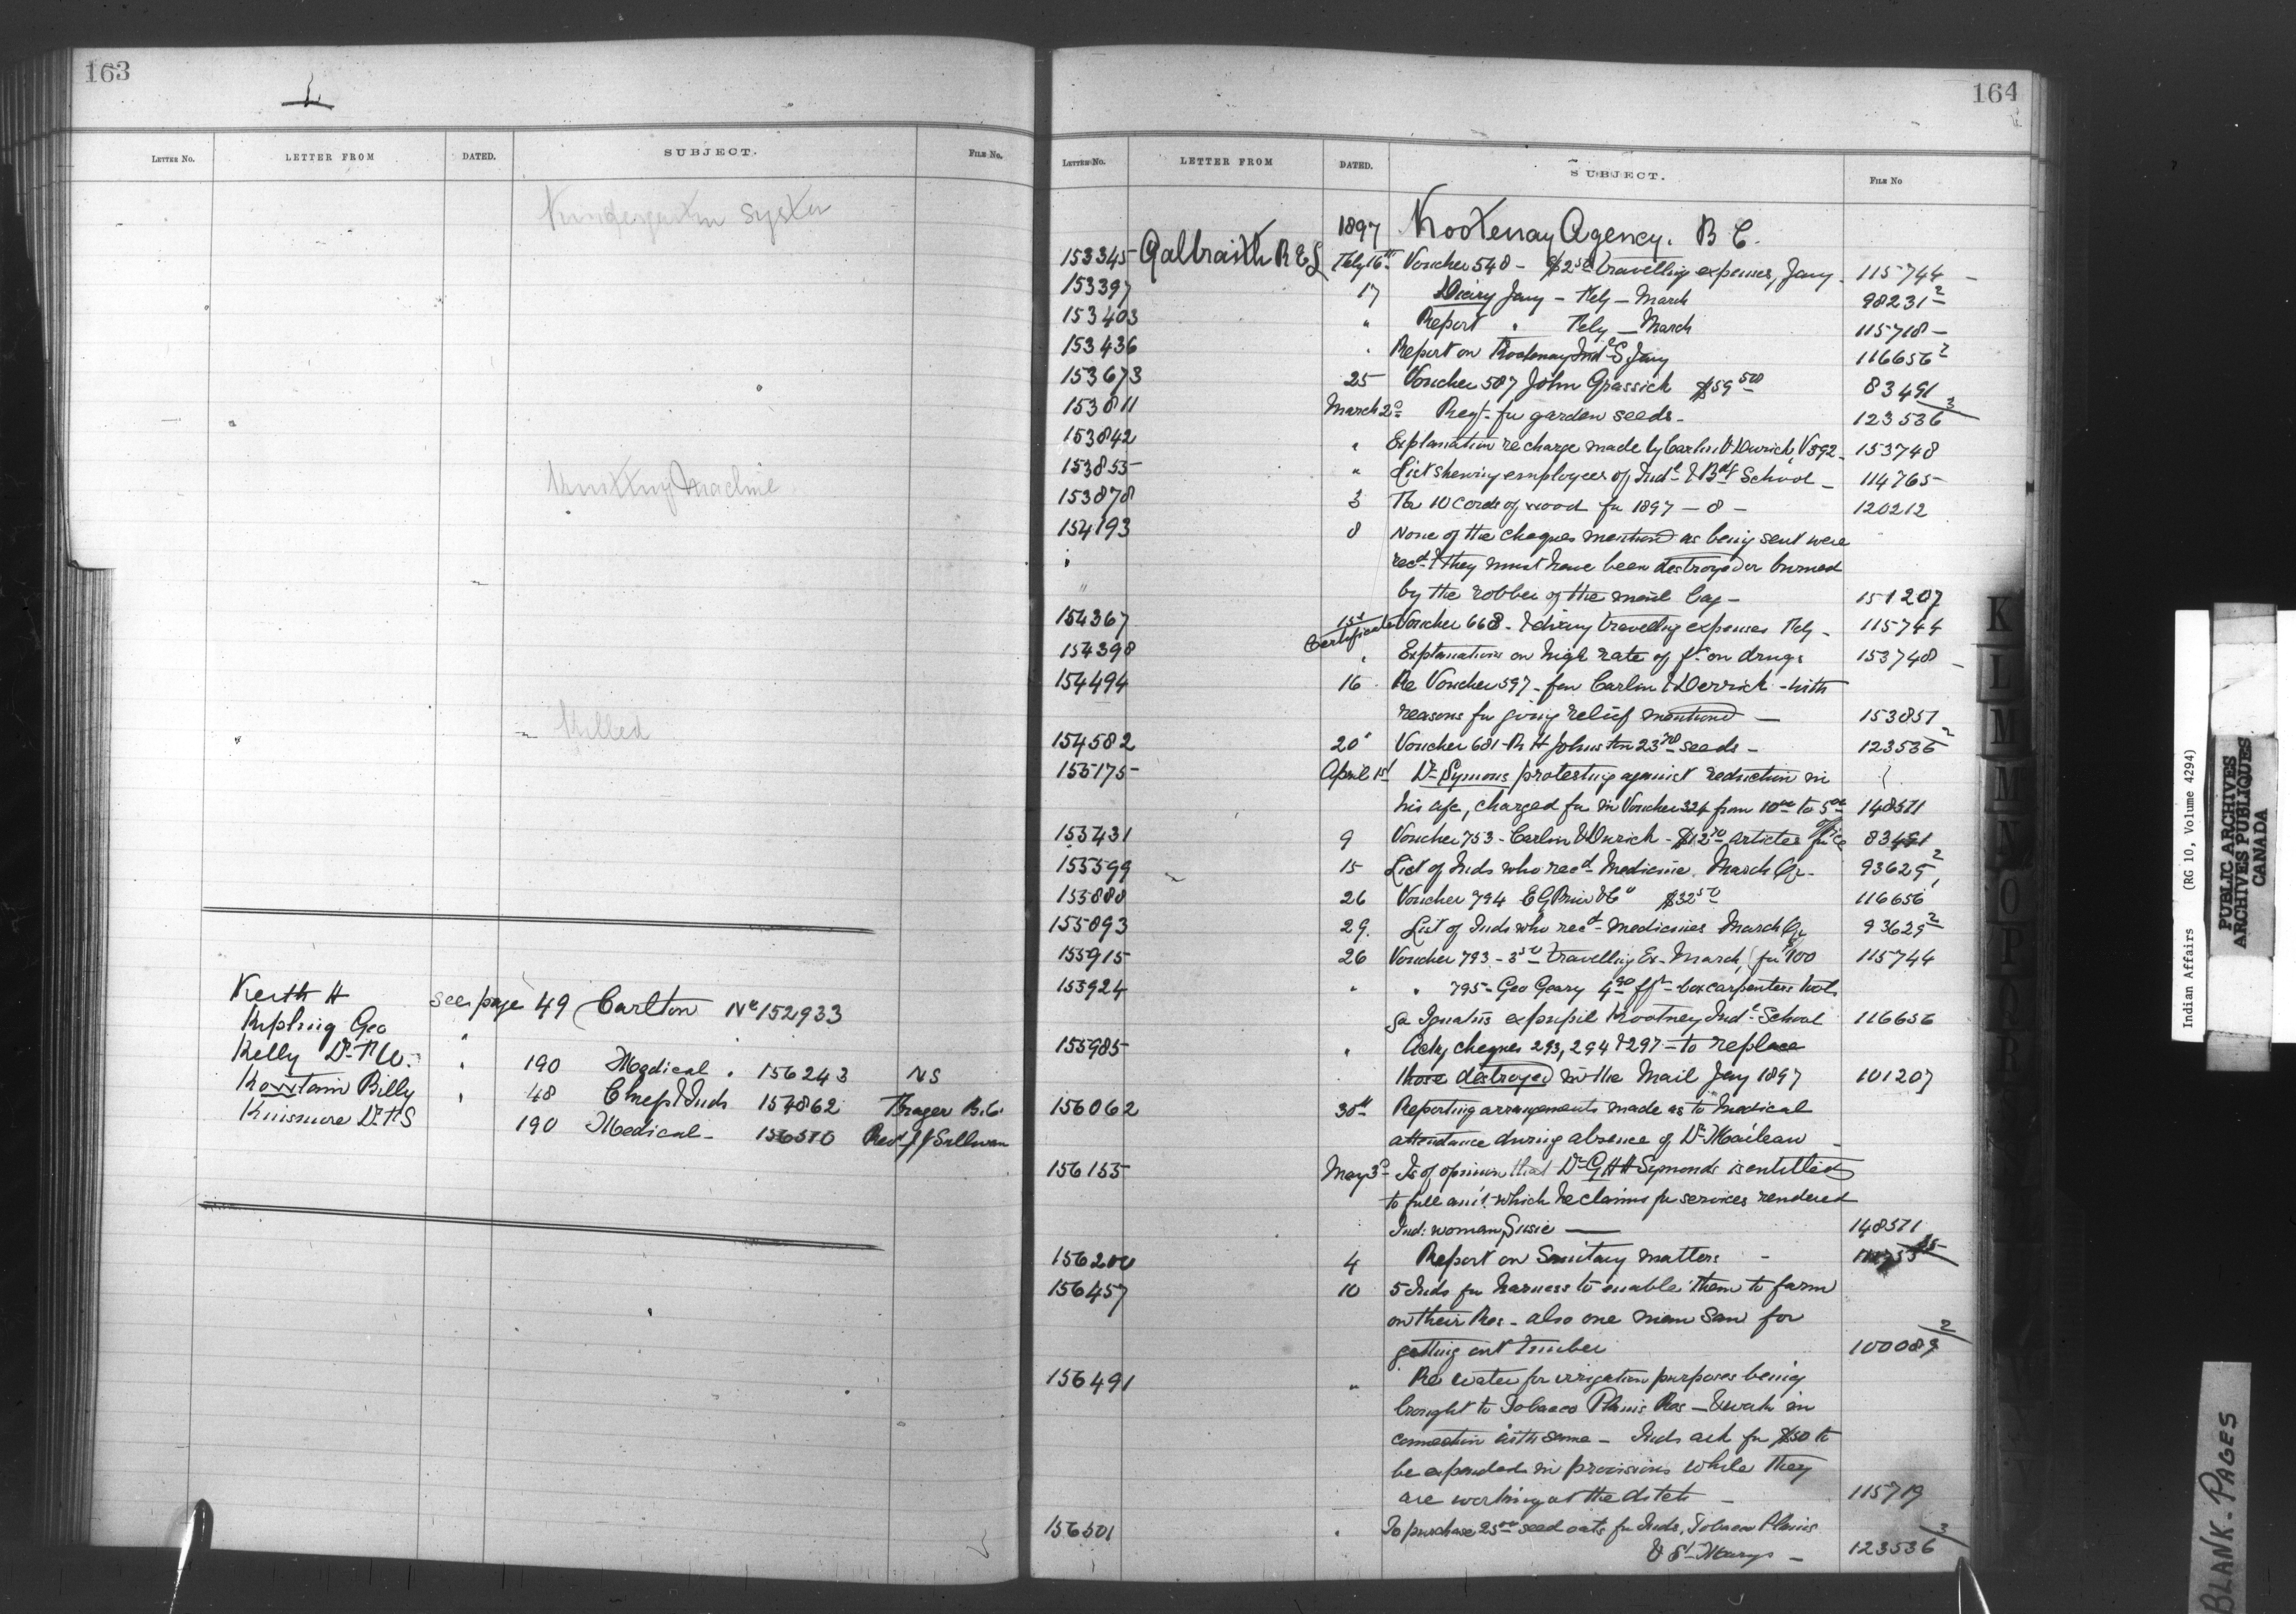 163
LETTER No. LETTER FROM DATED. SUBJECT. FILE No.
Kindergarten System
Knitting Machine
Killed
Keith H see page 49 Carlton No 152933
Kipling Geo "
Kelly Dr T W. " 190 Medical . 156243 NS
Billy " 48 Chiefs & Inds 154862 B.C.
Kinsmore Dr T S 190 Medical - 156510 Revd J J Sullivan
164
LETTER No. LETTER FROM DATED. SUBJECT. FILE No
1897 Kootenay Agency. B C.
153345 Galbraith R E L Feby 16th Voucher 548 - $2 50 travelling expenses, Jany - 115744 -
153397 17 Diary Jany - Feby - March 98231 2
153403 " Report " Feby - March 115718 -
153436 " Report on Kootenay Indl S, Jany 116656 2
153673 25 Voucher 587 John Grassick $59 50 83491
153811 March 2d Reqt. for garden seeds - 123536 3
153842 " Explanation re charge made by Carlin & Durick, V 592 - 153748
153855 " List shewing employees of Indl & Bdg School - 114765
153878 3 The 10 Cords of wood for 1897 - 8 - 120212
154193 8 None of the cheques mentioned as being sent were
" recd & they must have been destroyed or burned
" by the robber of the mail bag - 151207
154367 15th Certificate Voucher 668 - & diary travelling expenses Feby - 115744
154398 " Explanations on high rate of ft on drugs 153748 -
154494 16 Re Voucher 597 - for Carlin & Derrick - with
reasons for giving relief mentioned - 153851
154582 20 " Voucher 681 - R H Johnston 23 70 seeds - 123536 2
155175 April 1st Dr Symons protesting against reduction in
his a/c, charged for in Voucher 324 from 10 00 to 5 00 148571
155431 9 Voucher 753 - Carlin & Durick - $12 70 articles for office 83491
155599 15 List of Inds who recd Medicine. March Qr - 93625 2
155888 26 Voucher 794 E G Prior & Co $32 50 116656 1
155893 29. List of Inds who recd medicines March Qr 93625 2
155915 26 Voucher 793 - 3 50 travelling Ex - March, 115744
155924 " " 795 - Geo Geary 4 90 box carpenters tools
Ignatius expupil Kootney Indl School 116656
155985 " Ackg cheques 293, 294 & 297 - to replace
those destroyed in the Mail Jany 1897 101207
156062 30th Reporting arrangements made as to Medical
attendance during absence of Dr -
156155 May 3d - Is of opinion that Dr G H H Symonds is entitled
to full amt. which he claims for services rendered
Ind: woman, Susie - 148571
156200 4 Report on Sanitary matters -
156457 10 5 Inds for harness to enable them to farm
on their Res - also one man saw for
getting out timber 100089 2
156491 " Re water for irrigation purposes being
brought to Tobacco Plains Res - & work in
connection with same - Inds ask for $50 to
be expended in provisions while they
are working at the ditch - 115719
156501 " To purchase 25 00 seed oats for Inds, Tobacco Plains
& St Marys - 123536 3
K
L
M
M
N
O
P
Q
R
Indian Affairs (RG 10, Volume 4294)
PUBLIC ARCHIVES
ARCHIVES PUBLIQUES
CANADA
BLANK - PAGES